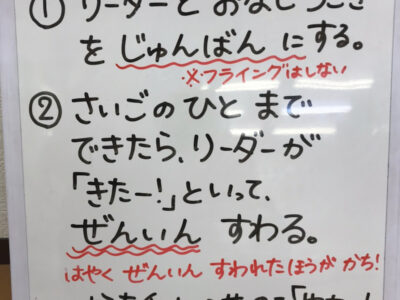 ① リーダーと おなじうごき
を じゅんばん に する。
※フライングはしない
② さいごの ひと まで
できたら、リーダーが
「きたー!」といって、
ぜんいん すわる。
はやく ぜんいん すわれたほうが かち!